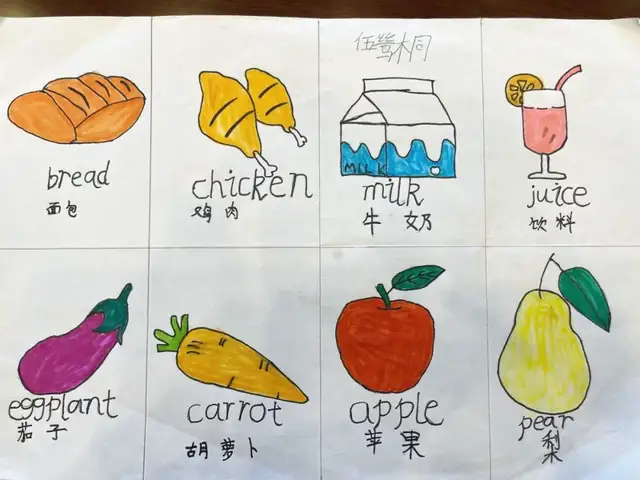 MILK
bread
面包
chicken
鸡肉
milk
牛奶
juice
饮料
eggplant
茄子
carrot
胡萝卜
apple
苹果
pear
梨